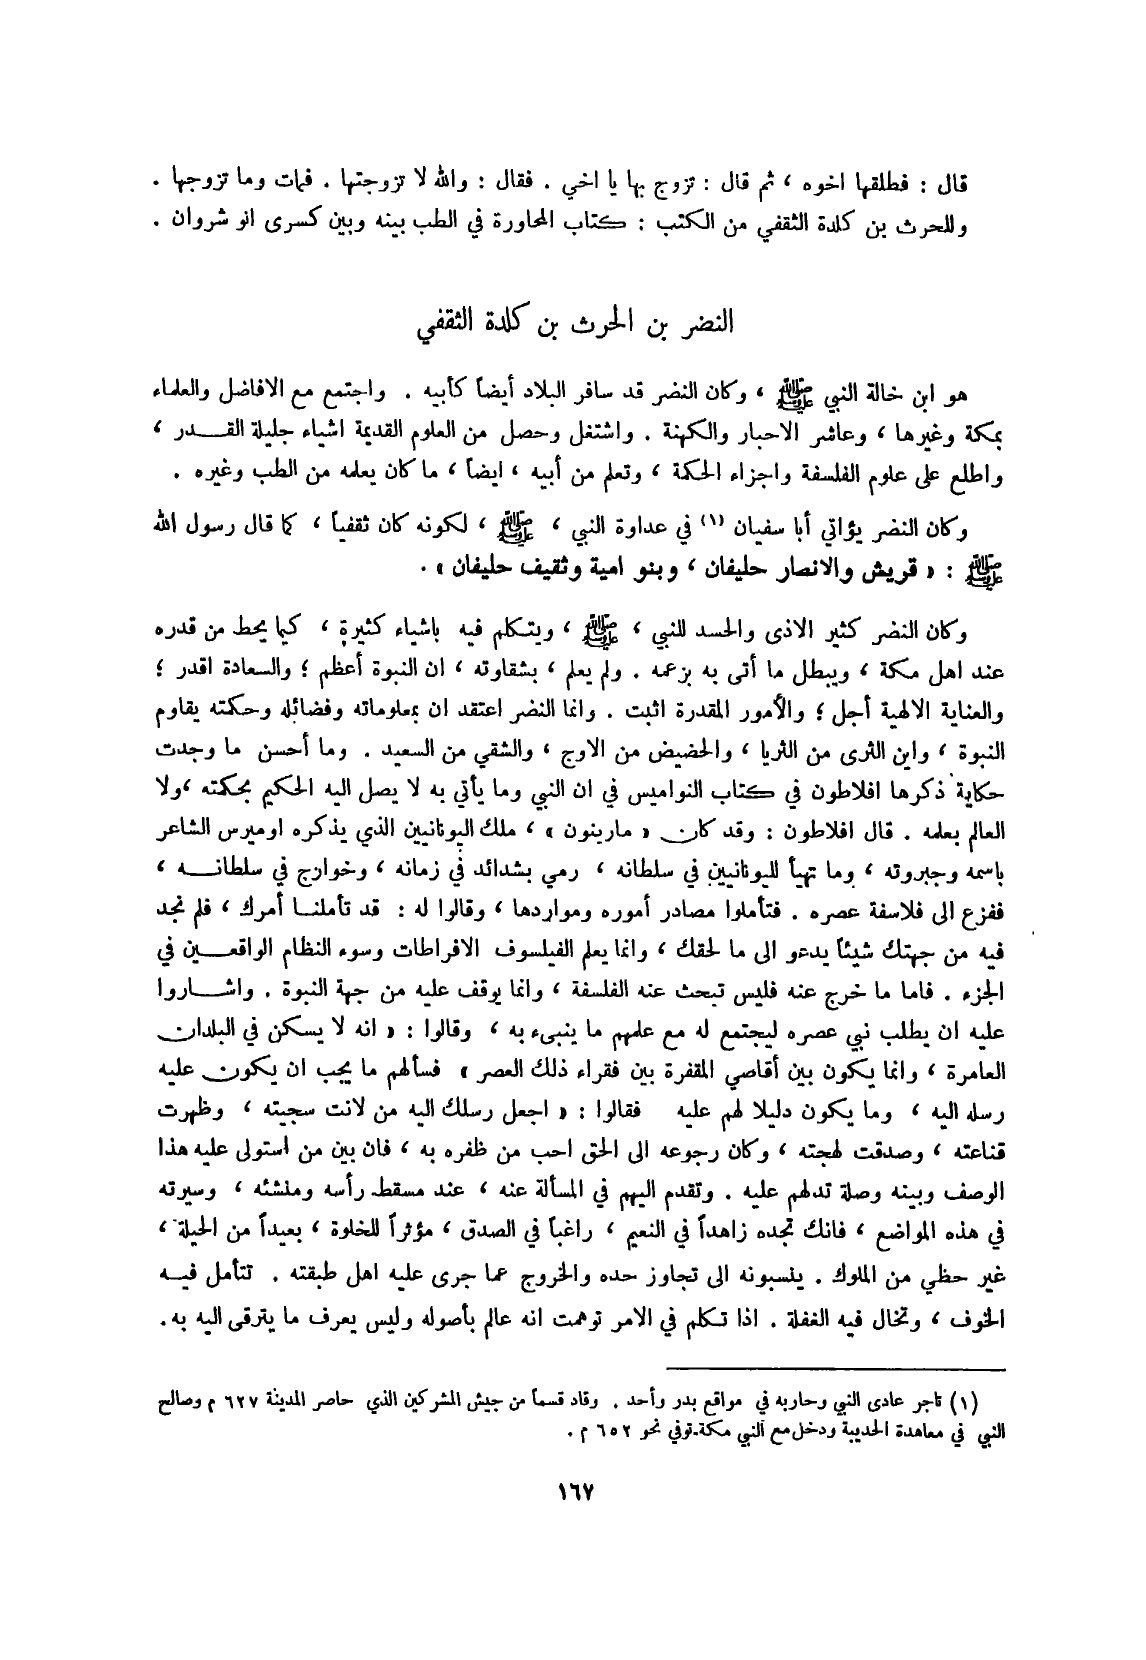 قال : فطلقها اخوه ، ثم قال : تزوج بها يا اخي . فقال : والله لا تزوجتها . فمات وما تزوجها .
وللحرث بن كلدة الثقفي من الكتب : كتاب المحاورة في الطب بينه وبين كسرى انو شروان .
النضر بن الحرث بن كلدة الثقفي
هو ابن خالة النبي ﷺ ، وكان النضر قد سافر البلاد أيضاً كأبيه . واجتمع مع الافاضل والعلماء
بمكة وغيرها ، وعاشر الاحبار والكهنة . واشتغل وحصل من العلوم القديمة اشياء جليلة القــدر ،
واطلع على علوم الفلسفة واجزاء الحكمة ، وتعلم من أبيه ، ايضاً ، ما كان يعلمه من الطب وغيره .
وكان النضر يؤاتي أبا سفيان (١) في عداوة النبي ، ﷺ ، لكونه كان ثقفياً ، كما قال رسول الله
ﷺ : « قريش والانصار حليفان ، وبنو امية وثقيف حليفان » .
وكان النضر كثير الاذى والحسد للنبي ، ﷺ ، ويتكلم فيه باشياء كثيرة ، كيما يحط من قدره
عند اهل مكة ، ويبطل ما أتى به بزعمه . ولم يعلم ، بشقاوته ، ان النبوة أعظم ؛ والسعادة اقدر ؛
والعناية الالهية أجل ؛ والأمور المقدرة اثبت . وانما النضر اعتقد ان بمعلوماته وفضائله وحكمته يقاوم
النبوة ، واين الثرى من الثريا ، والحضيض من الاوج ، والشقي من السعيد . وما أحسن ما وجدت
حكاية ذكرها افلاطون في كتاب النواميس في ان النبي وما يأتي به لا يصل اليه الحكيم بحكمته ، ولا
العالم بعلمه . قال افلاطون : وقد كان « مارينون » ، ملك اليونانيين الذي يذكره اوميرس الشاعر
باسمه وجبروته ، وما تهيأ لليونانيين في سلطانه ، رمي بشدائد في زمانه ، وخوارج في سلطانــه ،
ففزع الى فلاسفة عصره . فتأملوا مصادر أموره ومواردها ، وقالوا له : قد تأملنــا أمرك ، فلم نجد
فيه من جهتك شيئاً يدعو الى ما لحقك ، وانما يعلم الفيلسوف الافراطات وسوء النظام الواقعــين في
الجزء . فاما ما خرج عنه فليس تبحث عنه الفلسفة ، وانما يوقف عليه من جهة النبوة . واشــاروا
عليه ان يطلب نبي عصره ليجتمع له مع علمهم ما ينبىء به ، وقالوا : « انه لا يسكن في البلدان
العامرة ، وانما يكون بين أقاصي المقفرة بين فقراء ذلك العصر » فسألهم ما يجب ان يكون عليه
رسله اليه ، وما يكون دليلا لهم عليه فقالوا : « اجعل رسلك اليه من لانت سجيته ، وظهرت
قناعته ، وصدقت لهجته ، وكان رجوعه الى الحق احب من ظفره به ، فان بين من استولى عليه هذا
الوصف وبينه وصلة تدلهم عليه . وتقدم اليهم في المسألة عنه ، عند مسقط رأسه ومنشئه ، وسيرته
في هذه المواضع ، فانك تجده زاهداً في النعيم ، راغباً في الصدق ، مؤثراً للخلوة ، بعيداً من الحيلة ،
غير حظي من الملوك . ينسبونه الى تجاوز حده والخروج عما جرى عليه اهل طبقته . تتأمل فيــه
الخوف ، وتخال فيه الغفلة . اذا تكلم في الامر توهمت انه عالم بأصوله وليس يعرف ما يترقى اليه به .
(١) تاجر عادى النبي وحاربه في مواقع بدر وأحد . وقاد قسماً من جيش المشركين الذي حاصر المدينة ٦٢٧ م وصالح
النبي في معاهدة الحديبة ودخل مع النبي مكة.توفي نحو ٦٥٢ م .
١٦٧